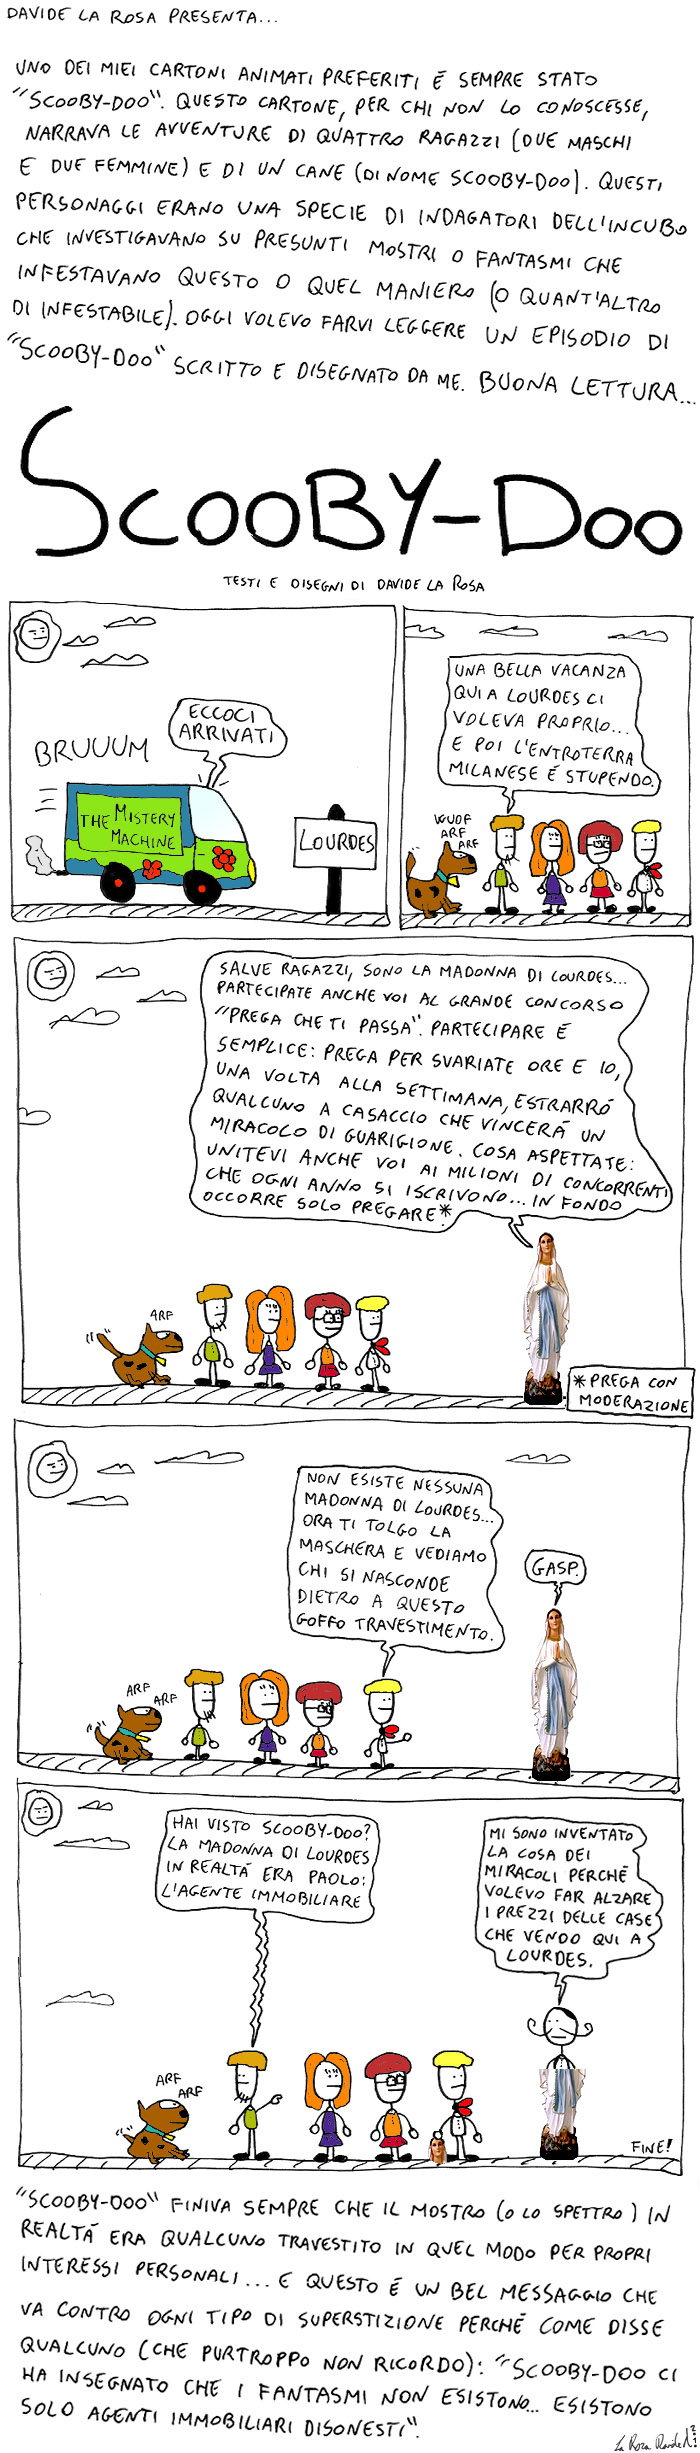 DAVIDE LA ROSA PRESENTA...
UNO DEI MIEI CARTONI ANIMATI PREFERITI É SEMPRE STATO
"SCOOBY-DOO". QUESTO CARTONE, PER CHI NON LO CONOSCESSE,
NARRAVA LE AVVENTURE DI QUATTRO RAGAZZI (DUE MASCHI
E DUE FEMMINE) E DI UN CANE (DI NOME SCOOBY-DOO). QUESTI
PERSONAGGI ERANO UNA SPECIE DI INDAGATORI DELL'INCUBO
CHE INVESTIGAVANO SU PRESUNTI MOSTRI O FANTASMI CHE
INFESTAVANO QUESTO O QUEL MANIERO (O QUANT'ALTRO
DI INFESTABILE). OGGI VOLEVO FARVI LEGGERE UN EPISODIO DI
"SCOOBY-DOO" SCRITTO E DISEGNATO DA ME. BUONA LETTURA...
SCOOBY-DOO
TESTI E DISEGNI DI DAVIDE LA ROSA
ECCOCI
ARRIVATI
BRUUUM
THE MISTERY
MACHINE
LOURDES
UNA BELLA VACANZA
QUI A LOURDES CI
VOLEVA PROPRIO...
E POI L'ENTROTERRA
MILANESE É STUPENDO.
WUOF
ARF
ARF
SALVE RAGAZZI, SONO LA MADONNA DI LOURDES...
PARTECIPATE ANCHE VOI AL GRANDE CONCORSO
"PREGA CHE TI PASSA". PARTECIPARE É
SEMPLICE: PREGA PER SVARIATE ORE E IO,
UNA VOLTA ALLA SETTIMANA, ESTRARRÓ
QUALCUNO A CASACCIO CHE VINCERÁ UN
MIRACOLO DI GUARIGIONE. COSA ASPETTATE:
UNITEVI ANCHE VOI AI MILIONI DI CONCORRENTI
CHE OGNI ANNO SI ISCRIVONO... IN FONDO
OCCORRE SOLO PREGARE*.
ARF
*PREGA CON
MODERAZIONE
NON ESISTE NESSUNA
MADONNA DI LOURDES...
ORA TI TOLGO LA
MASCHERA E VEDIAMO
CHI SI NASCONDE
DIETRO A QUESTO
GOFFO TRAVESTIMENTO.
GASP.
ARF
ARF
HAI VISTO SCOOBY-DOO?
LA MADONNA DI LOURDES
IN REALTÁ ERA PAOLO:
L'AGENTE IMMOBILIARE
MI SONO INVENTATO
LA COSA DEI
MIRACOLI PERCHÉ
VOLEVO FAR ALZARE
I PREZZI DELLE CASE
CHE VENDO QUI A
LOURDES.
ARF
ARF
FINE!
"SCOOBY-DOO" FINIVA SEMPRE CHE IL MOSTRO (O LO SPETTRO) IN
REALTÁ ERA QUALCUNO TRAVESTITO IN QUEL MODO PER PROPRI
INTERESSI PERSONALI... E QUESTO É UN BEL MESSAGGIO CHE
VA CONTRO OGNI TIPO DI SUPERSTIZIONE PERCHÉ COME DISSE
QUALCUNO (CHE PURTROPPO NON RICORDO): "SCOOBY-DOO CI
HA INSEGNATO CHE I FANTASMI NON ESISTONO... ESISTONO
SOLO AGENTI IMMOBILIARI DISONESTI".
La Rosa Davide